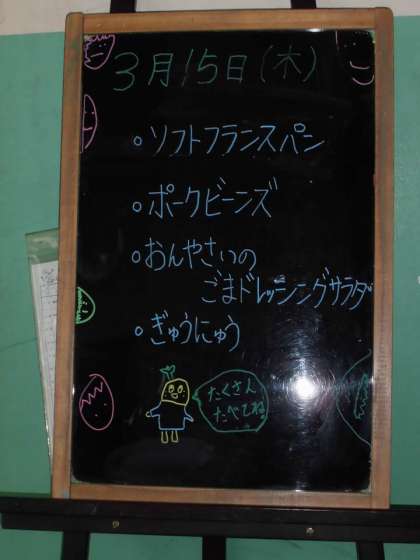 3月15日(木)
・ソフトフランスパン
・ポークビーンズ
・おんやさいの
ごまドレッシングサラダ
・ぎゅうにゅう
たくさん
たべてね